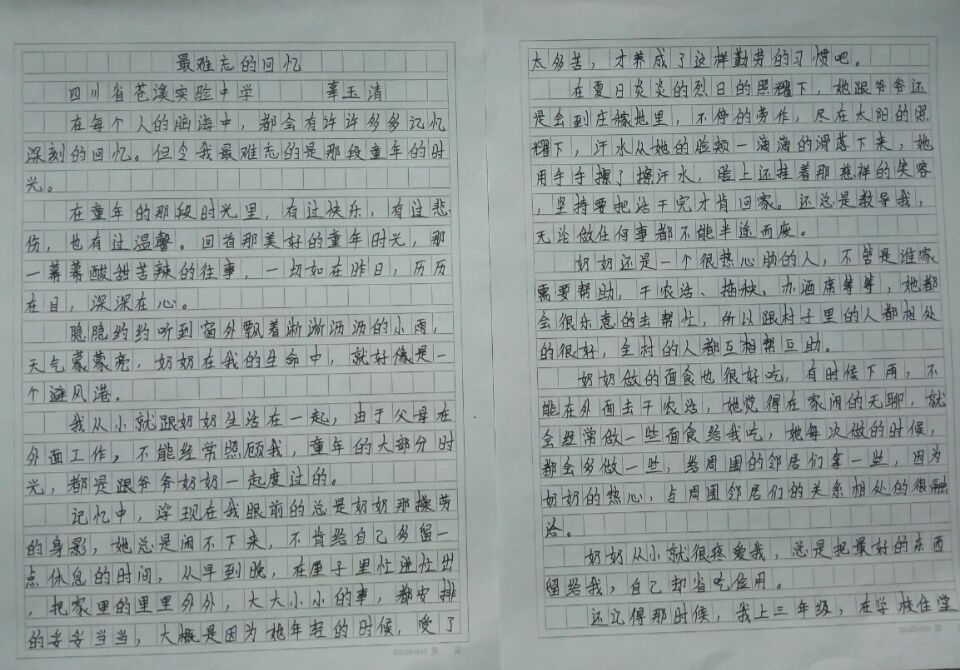 最难忘的回忆
四川省苍溪实验中学 辜玉清
在每个人的脑海中，都会有许许多多记忆
深刻的回忆。但令我最难忘的是那段童年的时
光。
在童年的那段时光里，有过快乐，有过悲
伤，也有过温馨。回首那美好的童年时光，那
一幕幕酸甜苦辣的往事，一切如在昨日，历历
在目，深深在心。
隐隐约约听到窗外飘着淅淅沥沥的小雨，
天气蒙蒙亮，奶奶在我的生命中，就好像是一
个避风港。
我从小就跟奶奶生活在一起，由于父母在
外面工作，不能经常照顾我，童年的大部分时
光，都是跟爷爷奶奶一起度过的。
记忆中，浮现在我眼前的总是奶奶那操劳
的身影，她总是闲不下来，不肯给自己多留一
点休息的时间，从早到晚，在屋子里忙进忙出
，把家里的里里外外，大大小小的事，都安排
的妥妥当当，大概是因为她年轻的时候，受了
20×20=400 第 页
太多苦，才养成了这样勤劳的习惯吧。
在夏日炎炎的烈日的照耀下，她跟爷爷还
是会到庄稼地里，不停的劳作，尽在太阳的照
耀下，汗水从她的脸颊一滴滴的滑落下来，她
用手手擦了擦汗水，脸上还挂着那慈祥的笑容
，坚持要把活干完才肯回家。还总是教导我，
无论做任何事都不能半途而废。
奶奶还是一个很热心肠的人，不管是谁家
需要帮助，干农活、插秧、办酒席等等，她都
会很乐意的去帮忙，所以跟村子里的人都相处
的很好，全村的人都互相帮互助。
奶奶做的面食也很好吃，有时候下雨，不
能在外面去干农活，她觉得在家闲的无聊，就
会经常做一些面食给我吃，她每次做的时候，
都会多做一些，给周围的邻居们拿一些，因为
奶奶的热心，与周围邻居们的关系相处的很融
洽。
奶奶从小就很疼爱我，总是把最好的东西
留给我，自己却省吃俭用。
还记得那时候，我上三年级，在学校住堂
20×20=400 第 页